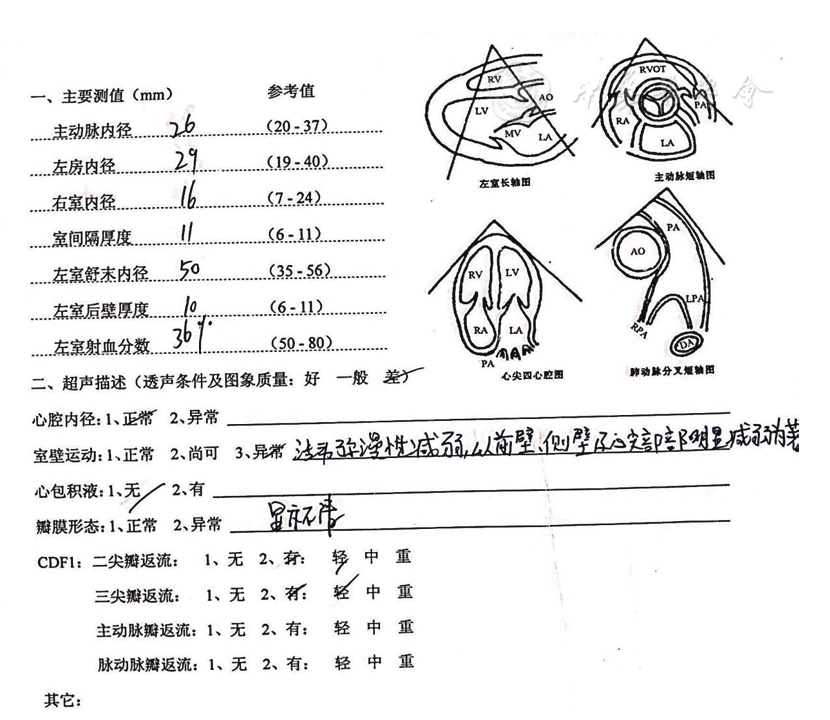 一、主要测值（mm） 参考值
主动脉内径 26 （20-37）
左房内径 29 （19-40）
右室内径 16 （7-24）
室间隔厚度 11 （6-11）
左室舒末内径 50 （35-56）
左室后壁厚度 10 （6-11）
左室射血分数 36% （50-80）
RV
LV
AO
MV
LA
左室长轴图
RVOT
RA
PA
LA
主动脉短轴图
RV
LV
RA
LA
PA
心尖四心腔图
PA
AO
LPA
RPA
DA
肺动脉分叉短轴图
二、超声描述（透声条件及图象质量：好 一般 差）
心腔内径：1、正常 2、异常
室壁运动：1、正常 2、尚可 3、异常 弥漫性减弱，以前壁、侧壁及心尖部明显减弱为著
心包积液：1、无 2、有
瓣膜形态：1、正常 2、异常 显示不清
CDF1：二尖瓣返流： 1、无 2、有： 轻 中 重
三尖瓣返流： 1、无 2、有： 轻 中 重
主动脉瓣返流：1、无 2、有： 轻 中 重
脉动脉瓣返流：1、无 2、有： 轻 中 重
其它：